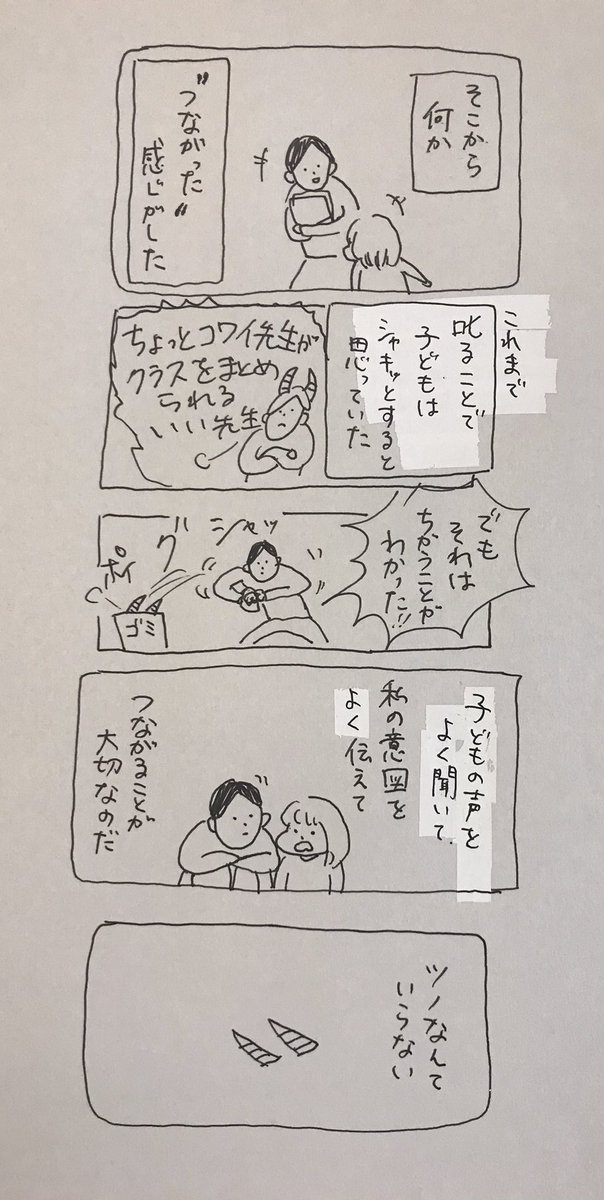 そこから
何か
“つながった”
感じがした
これまで
叱ることで
子どもは
シャキッとすると
思っていた
ちょっとコワイ先生が
クラスをまとめ
られる
いい先生
でも
それは
ちがうことが
わかった!!
グシャッ
ポイ
ゴミ
子どもの声を
よく聞いて
私の意図を
よく伝えて
つながることが
大切なのだ
ツノなんて
いらない